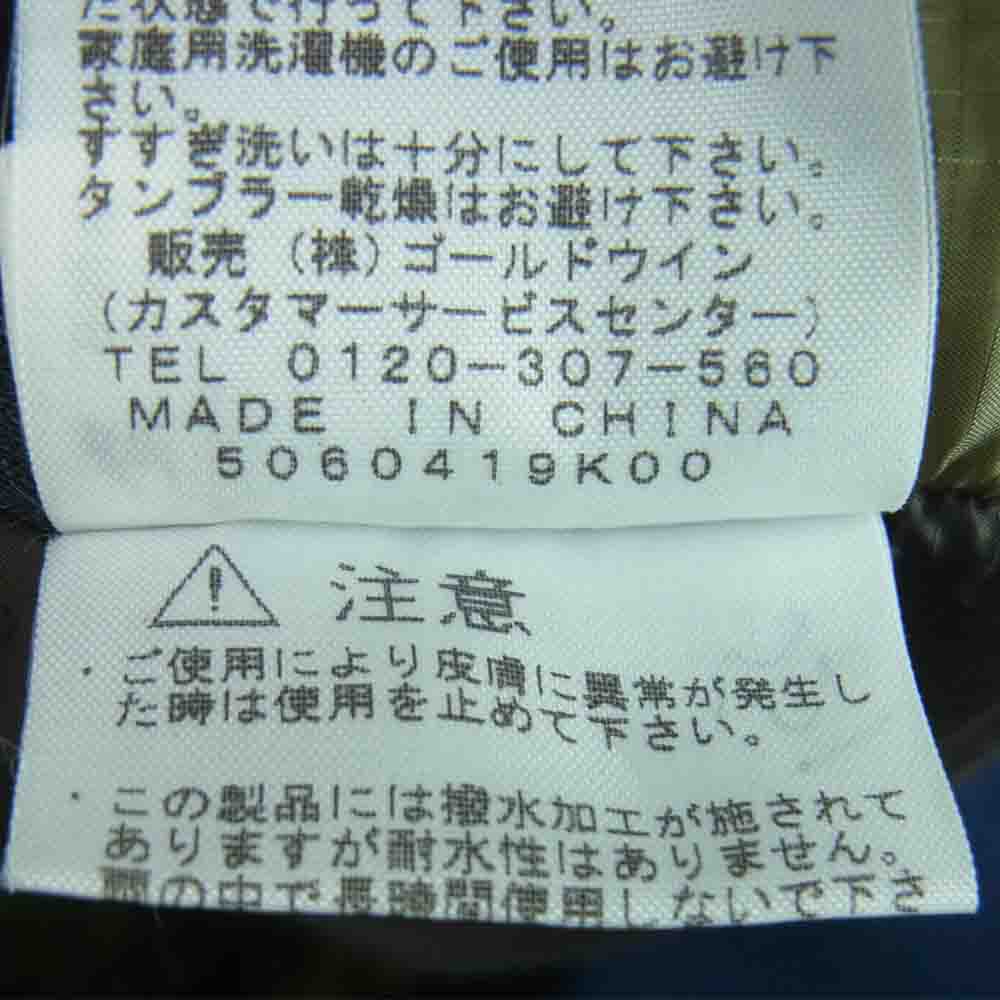 た状態で行って下さい。
家庭用洗濯機のご使用はお避け下
さい。
すすぎ洗いは十分にして下さい。
タンブラー乾燥はお避け下さい。
販売 (株)ゴールドウイン
(カスタマーサービスセンター)
TEL 0120-307-560
MADE IN CHINA
5060419K00
注意
・ご使用により皮膚に異常が発生し
た時は使用を止めて下さい。
・この製品には撥水加工が施されて
ありますが耐水性はありません。
雨の中で長時間使用しないで下さ